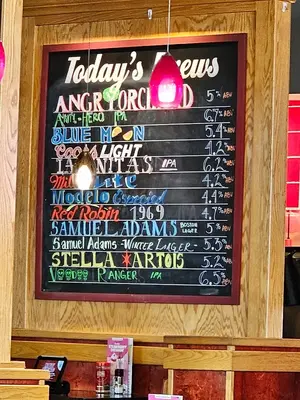 Today's Brews
ANGRY ORCHARD 5% ABV
ANTI-HERO IPA 6.7% ABV
BLUE MOON 5.4% ABV
Coors LIGHT 4.2% ABV
LAGUNITAS IPA 6.2% ABV
Miller Lite 4.2% ABV
Modelo Especial 4.4% ABV
Red Robin 1969 4.7% ABV
SAMUEL ADAMS BOSTON LAGER 5% ABV
Samuel Adams - WINTER LAGER - 5.5% ABV
STELLA ARTOIS 5.2% ABV
VOODOO RANGER IPA 6.5% ABV